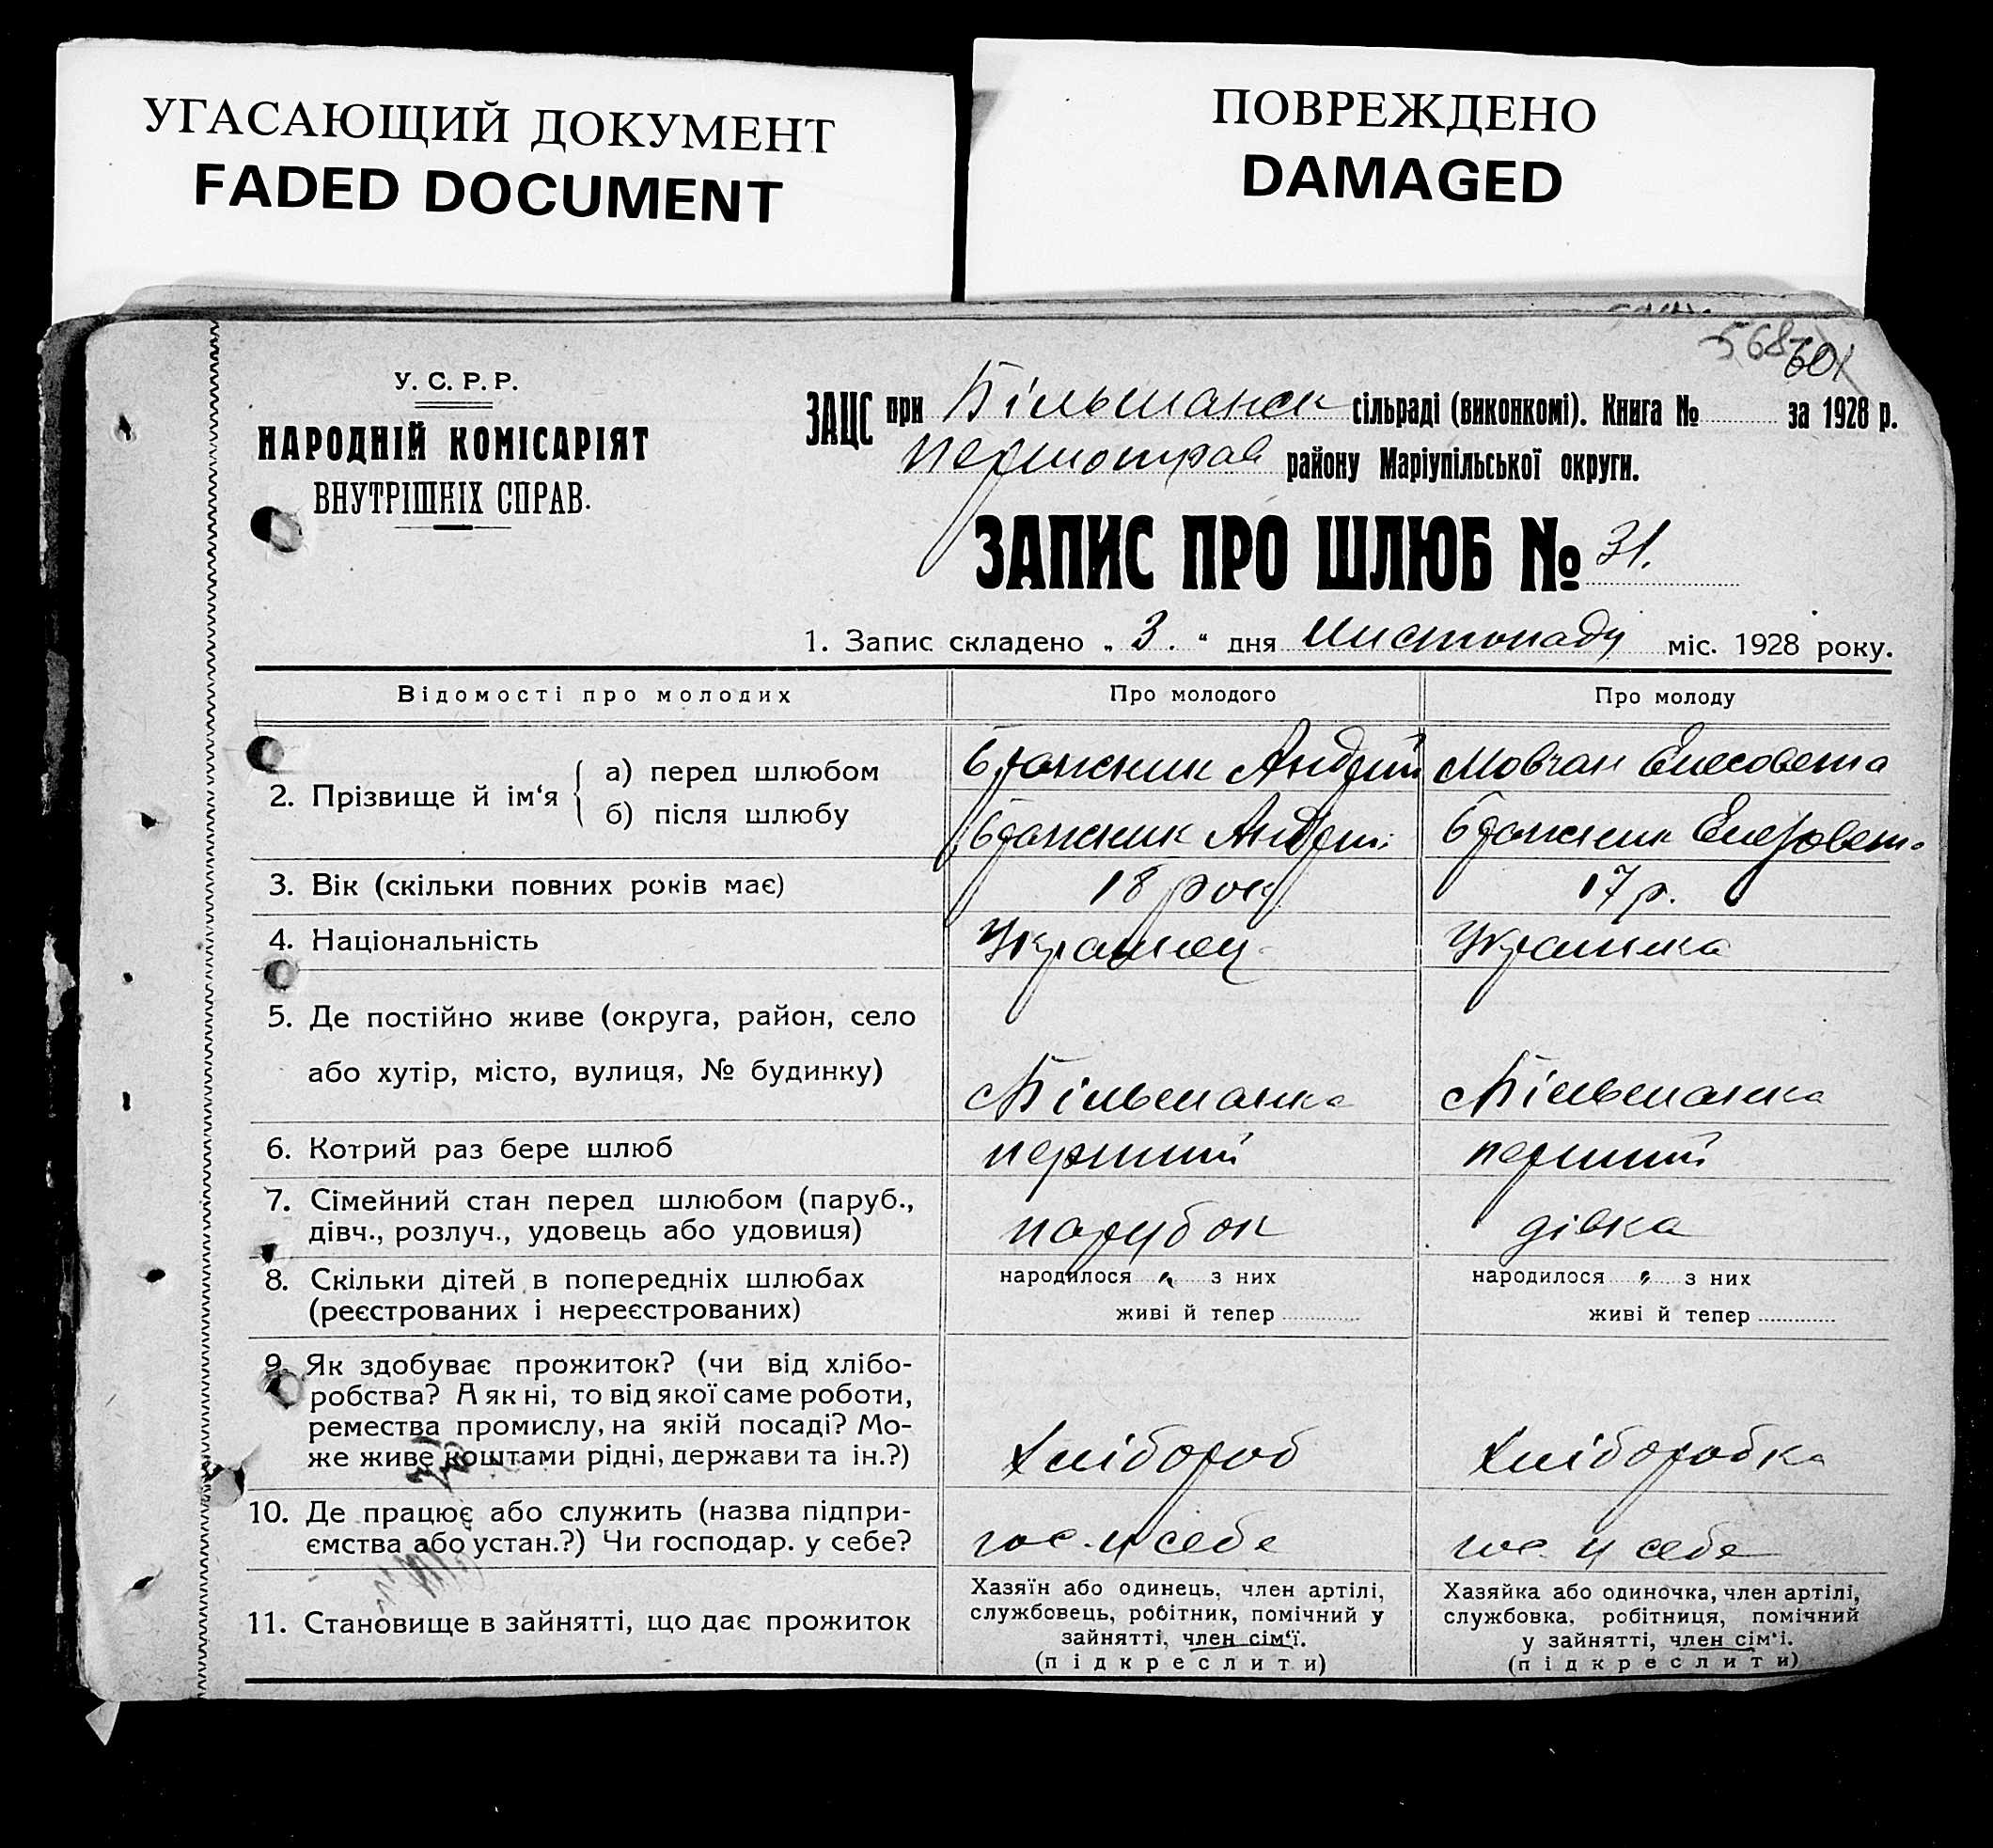 УГАСАЮЩИЙ ДОКУМЕНТ
FADED DOCUMENT
ПОВРЕЖДЕНО
DAMAGED
568 601
У. С. Р. Р.
НАРОДНІЙ КОМІСАРІЯТ
ВНУТРІШНІХ СПРАВ.
ЗАЦС при Більманск сільраді (виконкомі). Книга № за 1928 р.
району Маріупільської округи.
ЗАПИС ПРО ШЛЮБ № 31.
1. Запис складено „ 3. “ дня Листопаду міс. 1928 року.
Відомості про молодих
Про молодого
Про молоду
2. Прізвище й ім‘я
а) перед шлюбом
Бражник Андрій
Мовчан Елесовета
б) після шлюбу
Бражник Андрій
Бражник Елезовет
3. Вік (скільки повних років має)
18 рок
17 р.
4. Національність
Украінец
Украінка
5. Де постійно живе (округа, район, село
або хутір, місто, вулиця, № будинку)
с Більманка
с Більманка
6. Котрий раз бере шлюб
перший
перший
7. Сімейний стан перед шлюбом (паруб.,
дівч., розлуч., удовець або удовиця)
парубок
дівка
8. Скільки дітей в попередніх шлюбах
(реєстрованих і нереєстрованих)
народилося з них
живі й тепер
народилося з них
живі й тепер
9. Як здобуває прожиток? (чи від хлібо-
робства? А як ні, то від якої саме роботи,
ремества промислу, на якій посаді? Мо-
же живе коштами рідні, держави та ін.?)
Хлібороб
Хліборобка
10. Де працює або служить (назва підпри-
ємства або устан.?) Чи господар. у себе?
гос. у себе
гос. у себе
11. Становище в зайнятті, що дає прожиток
Хазяїн або одинець, член артілі,
службовець, робітник, помічний у
зайнятті, член сім‘ї.
(підкреслити)
Хазяйка або одиночка, член артілі,
службовка, робітниця, помічний
у зайнятті, член сім‘і.
(підкреслити)